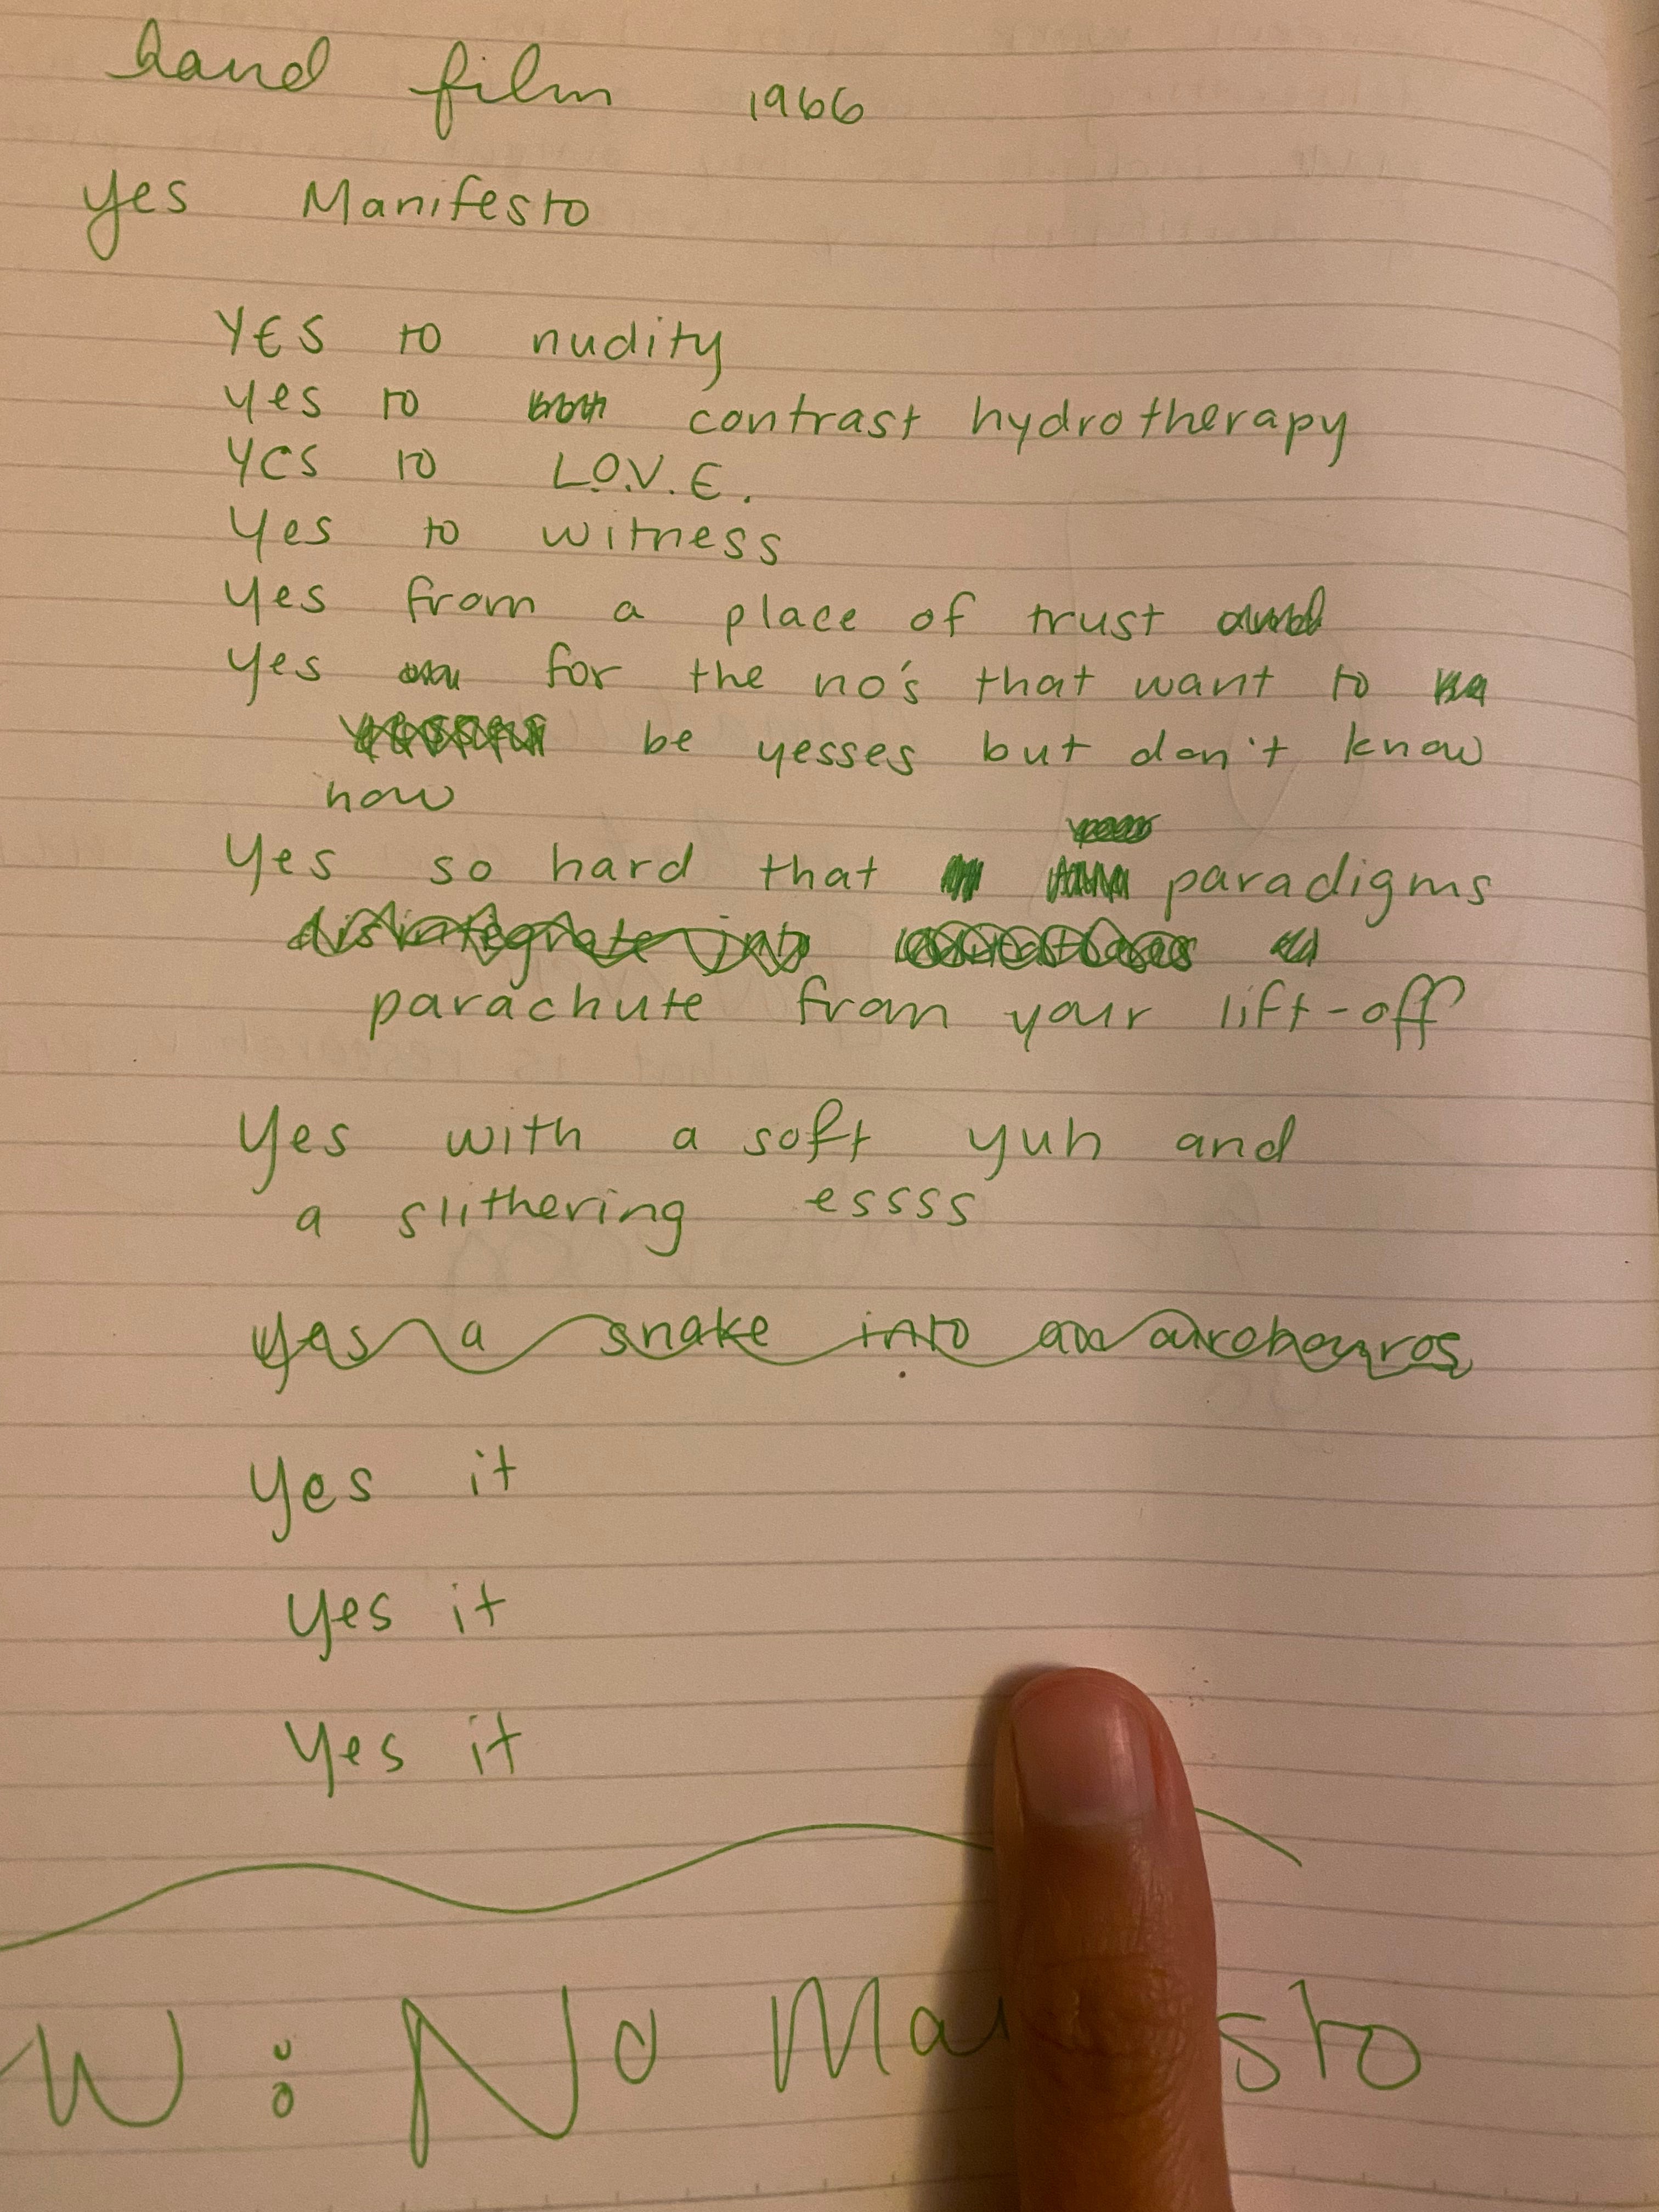 hand film 1966
yes Manifesto
YES to nudity
yes to contrast hydrotherapy
yes to L.O.V.E.
Yes to witness
Yes from a place of trust
yes for the no's that want to
be yesses but don't know
how
Yes so hard that paradigms
disintegrate into
parachute from your lift-off
Yes with a soft yuh and
a slithering essss
yes a snake into an
Yes it
Yes it
Yes it
W: No Ma sto